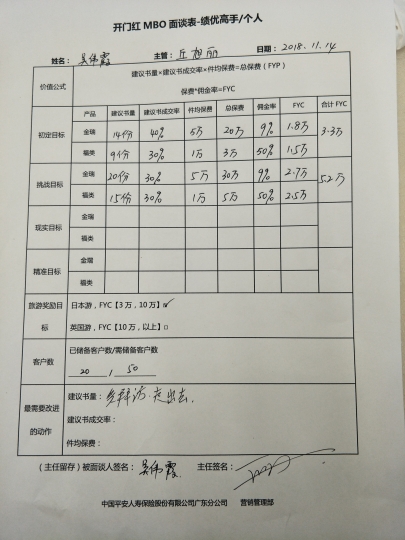 开门红 MBO 面谈表-绩优高手/个人
姓名：吴伟霞 主管：丘旭丽 日期：2018.11.14
价值公式 建议书量×建议书成交率×件均保费=总保费（FYP）
保费*佣金率=FYC
产品 建议书量 建议书成交率 件均保费 总保费 佣金率 FYC 合计 FYC
初定目标 金瑞 14份 40% 5万 20万 9% 1.8万 3.3万
福类 9份 30% 1万 3万 50% 1.5万
挑战目标 金瑞 20份 30% 5万 30万 9% 2.7万 5.2万
福类 15份 30% 1万 5万 50% 2.5万
现实目标 金瑞
福类
精准目标 金瑞
福类
旅游奖励目标 日本游，FYC【3 万，10 万】☑
英国游，FYC【10 万，以上】□
客户数 已储备客户数/需储备客户数
20 / 50
最需要改进的动作 建议书量：多拜访.走出去.
建议书成交率：
件均保费：
（主任留存）被面谈人签名：吴伟霞 主任签名：
中国平安人寿保险股份有限公司广东分公司 营销管理部